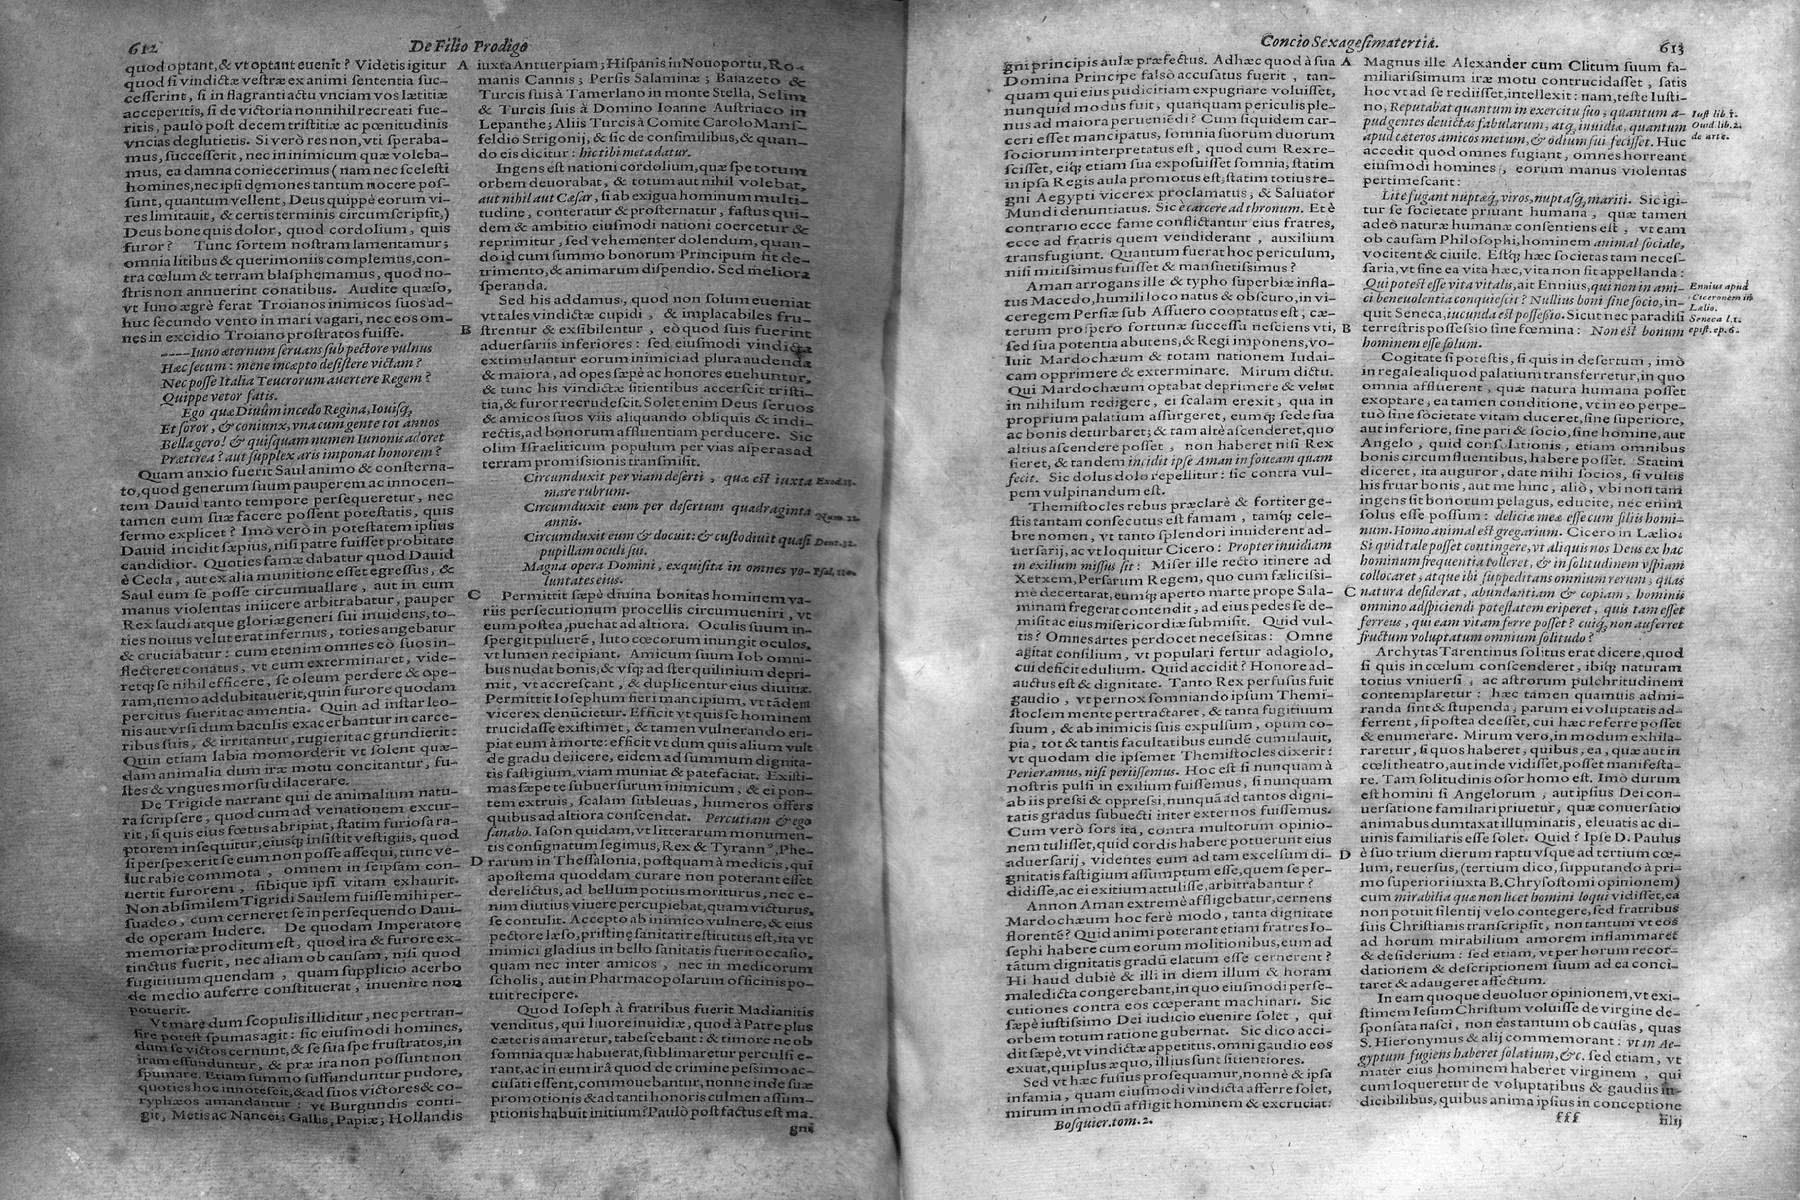 612
De Filio Prodigo
quod optant, & vt optant euenit? Videtis igitur
quod si vindictæ vestræ ex animi sententia suc-
cesserint, si in flagranti actu vnciam vos lætitiæ
acceperitis, si de victoria nonnihil recreati fue-
ritis, paulò post decem tristitiæ ac pœnitudinis
vncias deglutietis. Si verò res non, vti speraba-
mus, successerit, nec in inimicum quæ voleba-
mus, ea damna coniecerimus (nam nec scelesti
homines, nec ipsi dęmones tantum nocere pos-
sunt, quantum vellent, Deus quippè eorum vi-
res limitauit, & certis terminis circumscripsit,)
Deus bone quis dolor, quod cordolium, quis
furor? Tunc sortem nostram lamentamur;
omnia litibus & querimoniis complemus, con-
tra cœlum & terram blasphemamus, quod no-
stris non annuerint conatibus. Audite quæso,
vt Iuno ægrè ferat Troianos inimicos suos ad-
huc secundo vento in mari vagari, nec eos om-
nes in excidio Troiano prostratos fuisse.
----Iuno æternum seruans sub pectore vulnus
Hæc secum: mene incœpto desistere victam?
Nec posse Italia Teucrorum auertere Regem?
Quippe vetor fatis.
Ego quæ Diuûm incedo Regina, Iouisq́;
Et soror, & coniunx, vna cum gente tot annos
Bella gero! & quisquam numen Iunonis adoret
Præterea? aut supplex aris imponat honorem?
Quam anxio fuerit Saul animo & consterna-
to, quod generum suum pauperem ac innocen-
tem Dauid tanto tempore persequeretur, nec
tamen eum suæ facere possent potestatis, quis
sermo explicet? Imò verò in potestatem ipsius
Dauid incidit sæpius, nisi patre fuisset probitate
candidior. Quoties famæ dabatur quod Dauid
è Cecla, aut ex alia munitione esset egressus, &
Saul eum se posse circumuallare, aut in eum
manus violentas iniicere arbitrabatur, pauper
Rex laudi atque gloriæ generi sui inuidens, to-
ties nouus velut erat infernus, toties angebatur
& cruciabatur: cum etenim omnes eò suos in-
flecteret conatus, vt eum exterminaret, vide-
retq́; se nihil efficere, se oleum perdere & ope-
ram, nemo addubitauerit, quin furore quodam
percitus fuerit ac amentia. Quin ad instar leo-
nis aut vrsi dum baculis exacerbantur in carce-
ribus suis, & irritantur, rugierit ac grundierit:
Quin etiam labia momorderit vt solent quæ-
dam animalia dum iræ motu concitantur, su-
stes & vngues morsu dilacerare.
De Trigide narrant qui de animalium natu-
ra scripsere, quod cum ad venationem excur-
rit, si quis eius fœtus abripiat, statim furiosa ra-
ptorem insequitur, eiusq́; insistit vestigiis, quod
si perspexerit se eum non posse assequi, tunc ve-
lut rabie commota, omnem in seipsam con-
uertit furorem, sibique ipsi vitam exhaurit.
Non absimilem Tigridi Saulem fuisse mihi per-
suadeo, cum cerneret se in persequendo Daui-
de operam ludere. De quodam Imperatore
memoriæ proditum est, quod ira & furore ex-
tinctus fuerit, nec aliam ob causam, nisi quod
fugitiuum quendam, quam supplicio acerbo
de medio auferre constituerat, inuenire non
potuerit.
Vt mare dum scopulis illiditur, nec pertran-
sire potest spumas agit: sic eiusmodi homines,
dum se victos cernunt, & se sua spe frustratos, in
iram effunduntur, & præ ira non possunt non
spumare. Etiam summo suffunduntur pudore,
quoties hoc innotescit, & ad suos victores & co-
ryphæos amandantur: vt Burgundis conti-
git, Metis ac Nancei; Gallis, Papiæ; Hollandis
A
B
C
D
iuxta Antuerpiam; Hispanis in Nouoportu, Ro-
manis Cannis; Persis Salaminæ; Baiazeto &
Turcis suis à Tamerlano in monte Stella, Selim
& Turcis suis à Domino Ioanne Austriaco in
Lepanthe; Aliis Turcis à Comite Carolo Mans-
feldio Strigonij, & sic de consimilibus, & quan-
do eis dicitur: hic tibi meta datur.
Ingens est nationi cordolium, quæ spe totum
orbem deuorabat, & totum aut nihil volebat,
aut nihil aut Cæsar, si ab exigua hominum multi-
tudine, conteratur & prosternatur, fastus qui-
dem & ambitio eiusmodi nationi coercetur &
reprimitur, sed vehementer dolendum, quan-
do id cum summo bonorum Principum fit de-
trimento, & animarum dispendio. Sed meliora
speranda.
Sed his addamus, quod non solum eueniat
vt tales vindictæ cupidi, & implacabiles fru-
strentur & exsibilentur, eò quod suis fuerint
aduersariis inferiores: sed eiusmodi vindicta
extimulantur eorum inimici ad plura audenda
& maiora, ad opes sæpè ac honores euehuntur,
& tunc his vindictæ sitientibus accerscit tristi-
tia, & furor recrudescit. Solet enim Deus seruos
& amicos suos viis aliquando obliquis & indi-
rectis, ad bonorum affluentiam perducere. Sic
olim Israeliticum populum per vias asperas ad
terram promissionis transmisit.
Circumduxit per viam deserti, quæ est iuxta
mare rubrum.
Circumduxit eum per desertum quadraginta
annis.
Circumduxit eum & docuit: & custodiuit quasi
pupillam oculi sui.
Magna opera Domini, exquisita in omnes vo-
luntates eius.
Exod 13.
Num. 32.
Deut. 32.
Psal. 110.
Permittit sæpè diuina bonitas hominem va-
riis persecutionum procellis circumueniri, vt
eum postea, puehat ad altiora. Oculis suum in-
spergit puluerē, luto cœcorum inungit oculos,
vt lumen recipiant. Amicum suum Iob omni-
bus nudat bonis, & vsq́; ad sterquilinium depri-
mit, vt accrescant, & duplicentur eius diuitiæ.
Permittit Iosephum fieri mancipium, vt tādem
vicerex denūcietur. Efficit vt quis se hominem
trucidasse existimet, & tamen vulnerando eri-
piat eum à morte: efficit vt dum quis alium vult
de gradu deiicere, eidem ad summum dignita-
tis fastigium, viam muniat & patefaciat. Existi-
mas sæpe te subuersurum inimicum, & ei pon-
tem extruis, scalam subleuas, humeros offers
quibus ad altiora conscendat. Percutiam & ego
sanabo. Iason quidam, vt litterarum monumen-
tis consignatum legimus, Rex & Tyrannꝰ, Phe-
rarum in Thessalonia, postquam à medicis, qui
apostema quoddam curare non poterant esset
derelictus, ad bellum potius moriturus, nec e-
nim diutius viuere percupiebat, quam victurus,
se contulit. Accepto ab inimico vulnere, & eius
pectore læso, pristinę sanitati restitutus est, ita vt
inimici gladius in bello sanitatis fuerit occasio,
quam nec inter amicos, nec in medicorum
scholis, aut in Pharmacopolarum officinis po-
tuit recipere.
Quod Ioseph à fratribus fuerit Madianitis
venditus, qui liuore inuidiæ, quod à Patre plus
cæteris amaretur, tabescebant: & timore ne ob
somnia quæ habuerat, sublimaretur perculsi e-
rant, ac in eum irâ quod de crimine pessimo ac-
cusati essent, commouebantur, nonne inde suæ
promotionis & ad tanti honoris culmen assum-
ptionis habuit initium? Paulò post factus est ma-
gni
Concio Sexagesimatertia.
613
gni principis aulæ præfectus. Ad hæc quod à sua
Domina Principe falsò accusatus fuerit, tan-
quam qui eius pudicitiam expugnare voluisset,
nunquid modus fuit, quanquam periculis ple-
nus ad maiora perueniēdi? Cum siquidem car-
ceri esset mancipatus, somnia suorum duorum
sociorum interpretatus est, quod cum Rex re-
scisset, eiq́; etiam sua exposuisset somnia, statim
in ipsa Regis aula promotus est, statim totius re-
gni Aegypti vicerex proclamatus, & Saluator
Mundi denuntiatus. Sic è carcere ad thronum. Et è
contrario ecce fame conflictantur eius fratres,
ecce ad fratris quem vendiderant, auxilium
transfugiunt. Quantum fuerat hoc periculum,
nisi mitissimus fuisset & mansuetissimus?
Aman arrogans ille & typho superbiæ infla-
tus Macedo, humili loco natus & obscuro, in vi-
ceregem Persiæ sub Assuero cooptatus est, cæ-
terum prospero fortunæ successu nesciens vti,
sed sua potentia abutens, & Regi imponens, vo-
luit Mardochæum & totam nationem Iudai-
cam opprimere & exterminare. Mirum dictu.
Qui Mardochæum optabat deprimere & velut
in nihilum redigere, ei scalam erexit, qua in
proprium palatium assurgeret, eumq́; sede sua
ac bonis deturbaret; & tam altè ascenderet, quo
altius ascendere posset, non haberet nisi Rex
fieret, & tandem incidit ipse Aman in foueam quam
fecit. Sic dolus dolo repellitur: sic contra vul-
pem vulpinandum est.
Themistocles rebus præclarè & fortiter ge-
stis tantam consecutus est famam, tamq́; cele-
bre nomen, vt tanto splendori inuiderent ad-
uersarij, ac vt loquitur Cicero: Propter inuidiam
in exilium missus sit: Miser ille recto itinere ad
Xerxem, Persarum Regem, quo cum fæliciss-
mè decertarat, eumq́; aperto marte prope Sala-
minam fregerat contendit, ad eius pedes se de-
misit ac eius misericordiæ submisit. Quid vul-
tis? Omnes artes perdocet necessitas: Omne
agitat consilium, vt populari fertur adagiolo,
cui deficit edulium. Quid accidit? Honore ad-
auctus est & dignitate. Tanto Rex perfusus fuit
gaudio, vt pernox somniando ipsum Themi-
stoclem mente pertractaret, & tanta fugitiuum
suum, & ab inimicis suis expulsum, opum co-
pia, tot & tantis facultatibus eundē cumulauit,
vt quodam die ipsemet Themistocles dixerit:
Perieramus, nisi periissemus. Hoc est si nunquam à
nostris pulsi in exilium fuissemus, si nunquam
ab iis pressi & oppressi, nunquā ad tantos digni-
tatis gradus subuecti inter externos fuissemus.
Cum verò sors ita, contra multorum opinio-
nem tulisset, quid cordis habere potuerunt eius
aduersarij, videntes eum ad tam excelsum di-
gnitatis fastigium assumptum esse, quem se per-
didisse, ac ei exitium attulisse, arbitrabantur?
Annon Aman extremè affligebatur, cernens
Mardochæum hoc ferè modo, tanta dignitate
florentē? Quid animi poterant etiam fratres Io-
sephi habere cum eorum molitionibus, eum ad
tātum dignitatis gradū elatum esse cernerent?
Hi haud dubiè & illi in diem illum & horam
maledicta congerebant, in quo eiusmodi perse-
cutiones contra eos cœperant machinari. Sic
sæpè iustissimo Dei iudicio euenire solet, qui
orbem totum ratione gubernat. Sic dico acci-
dit sæpè, vt vindictæ appetitus, omni gaudio eos
exuat, qui plus æquo, illius sunt sitientiores.
Sed vt hæc fusius prosequamur, nonnè & ipsa
infamia, quam eiusmodi vindicta afferre solet,
mirum in modū affligit hominem & excruciat:
Bosquier. tom. 2.
A
B
C
D
Magnus ille Alexander cum Clitum suum fa-
miliarissimum iræ motu contrucidasset, satis
hoc vt ad se rediisset, intellexit: nam, teste Iusti-
no, Reputabat quantum in exercitu suo, quantum a-
pud gentes deuictas fabularum, atq́; inuidiæ, quantum
apud cæteros amicos metum, & odium sui fecisset. Huc
accedit quod omnes fugiant, omnes horreant
eiusmodi homines, eorum manus violentas
pertimescant:
Lite fugant nuptæq́; viros, nuptasq́; mariti. Sic igi-
tur se societate priuant humana, quæ tamen
adeò naturæ humanæ consentiens est, vt eam
ob causam Philosophi, hominem animal sociale,
vocitent & ciuile. Estq́; hæc societas tam neces-
saria, vt sine ea vita hæc, vita non sit appellanda:
Qui potest esse vita vitalis, ait Ennius, qui non in ami-
ci beneuolentia conquiescit? Nullius boni sine socio, in-
quit Seneca, iucunda est possessio. Sicut nec paradisi
terrestris possessio sine fœmina: Non est bonum
hominem esse solum.
Iust lib 1.
Ouid lib. 2.
de arte.
Ennius apud
Ciceronem in
Lalio.
Seneca l. 1.
epist. ep. 6.
Cogitate si potestis, si quis in desertum, imò
in regale aliquod palatium transferretur, in quo
omnia affluerent, quæ natura humana posset
exoptare, ea tamen conditione, vt in eo perpe-
tuò sine societate vitam duceret, sine superiore,
aut inferiore, sine pari & socio, sine homine, aut
Angelo, quid consolationis, etiam omnibus
bonis circumfluentibus, habere posset. Statim
diceret, ita auguror, date mihi socios, si vultis
his fruar bonis, aut me hinc, aliò, vbi non tam
ingens sit bonorum pelagus, educite, nec enim
solus esse possum: deliciæ meæ esse cum filiis homi-
num. Homo animal est gregarium. Cicero in Lælio:
Si quid tale posset contingere, vt aliquis nos Deus ex hac
hominum frequentia tolleret, & in solitudinem vspiam
collocaret, atque ibi suppeditans omnium rerum, quas
natura desiderat, abundantiam & copiam, hominis
omnino adspiciendi potestatem eriperet, quis tam esset
ferreus, qui eam vitam ferre posset? cuiq́; non auferret
fructum voluptatum omnium solitudo?
Archytas Tarentinus solitus erat dicere, quod
si quis in cœlum conscenderet, ibiq́; naturam
totius vniuersi, ac astrorum pulchritudinem
contemplaretur: hæc tamen quamuis admi-
randa sint & stupenda, parum ei voluptatis ad-
ferrent, si postea deesset, cui hæc referre posset
& enumerare. Mirum vero, in modum exhila-
raretur, si quos haberet, quibus, ea, quæ aut in
cœli theatro, aut inde vidisset, posset manifesta-
re. Tam solitudinis osor homo est. Imò durum
est homini si Angelorum, aut ipsius Dei con-
uersatione familiari priuetur, quæ conuersatio
animabus dumtaxat illuminatis, eleuatis ac di-
uinis familiaris esse solet. Quid? Ipse D. Paulus
è suo trium dierum raptu vsque ad tertium cœ-
lum, reuersus, (tertium dico, supputando à pri-
mo superiori iuxta B. Chrysostomi opinionem)
cum mirabilia quæ non licet homini loqui vidisset, ea
non potuit silentij velo contegere, sed fratribus
suis Christianis transcripsit, non tantum vt eos
ad horum mirabilium amorem inflammaret
& desiderium: sed etiam, vt per horum recor-
dationem & descriptionem suum ad ea conci-
taret & adaugeret affectum.
In eam quoque deuoluor opinionem, vt exi-
stimem Iesum Christum voluisse de virgine de-
sponsata nasci, non eas tantum ob causas, quas
S. Hieronymus & alij commemorant: vt in Ae-
gyptum fugiens haberet solatium, &c. sed etiam, vt
mater eius hominem haberet virginem, qui
cum loqueretur de voluptatibus & gaudiis in-
dicibilibus, quibus anima ipsius in conceptione
fff
filij